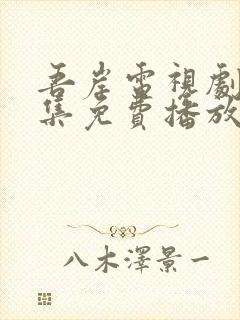 吾岸雷視劇
集免費播放
八木澤景一